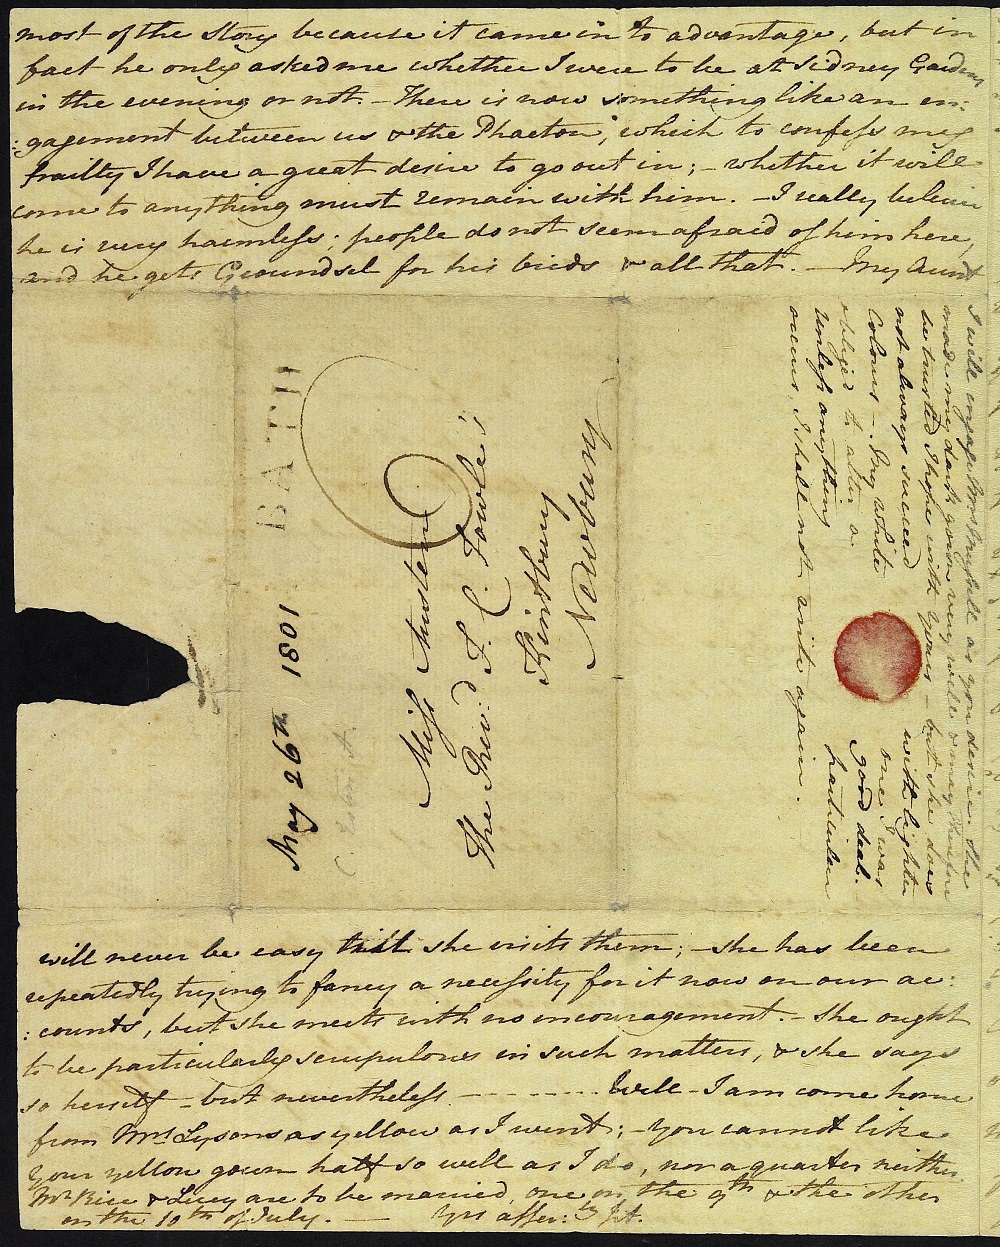 most of the Story because it came in to advantage, but in
fact he only asked me whether I were to be at Sidney Gardens
in the evening or not. – There is now something like an en:
:gagement between us & the Phaeton, which to confess my
frailty I have a great desire to go out in; – whether it will
come to anything must remain with him. – I really beleive
he is very harmless; people do not seem afraid of him here,
and he gets Groundsel for his birds & all that. – My Aunt
BATH
May 26th 1801
Miss Austen
The Revd F. C. Fowle's
Kintbury
Newbury
I will engage Mrs Mussell as you desire. She
made my dark gown very well & may therefore
be trusted I hope with Yours – but she does
not always succeed with lighter
Colours. – My white one I was
obliged to alter a good deal. –
Unless anything particular
occurs, I shall not write again.
will never be easy till she visits them; – she has been
repeatedly trying to fancy a necessity for it now on our ac:
:counts, but she meets with no encouragement. – She ought
to be particularly scrupulous in such matters, & she says
so herself – but nevertheless – – – – – – – – Well – I am come home
from Mrs Lysons as yellow as I went; – You cannot like
Your yellow gown half so well as I do, nor a quarter neither.
Mr Rice & Lucy are to be married, one on the 9th & the other
on the 10th of July. – Yrs affec:ly JA.